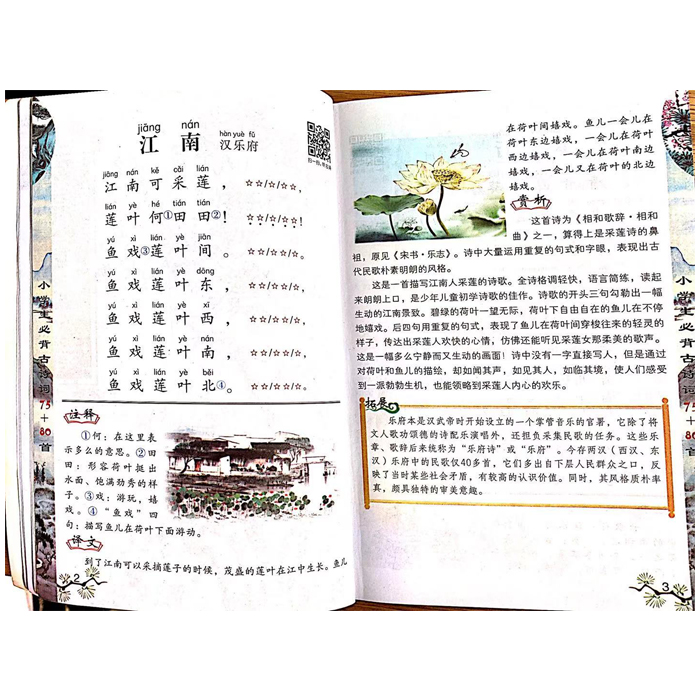 jiāng nán
江南
hàn yuè fǔ
汉乐府
扫一扫,听音频
jiāng nán kě cǎi lián
江南可采莲,☆☆/☆/☆☆,
lián yè hé tián tián
莲叶何①田田②!☆☆/☆/☆☆!
yú xì lián yè jiān
鱼戏③莲叶间。☆☆/☆☆/☆。
yú xì lián yè dōng
鱼戏莲叶东,☆☆/☆☆/☆,
yú xì lián yè xī
鱼戏莲叶西,☆☆/☆☆/☆,
yú xì lián yè nán
鱼戏莲叶南,☆☆/☆☆/☆,
yú xì lián yè běi
鱼戏莲叶北④。☆☆/☆☆/☆。
注释
①何:在这里表
示多么的意思。②田
田:形容荷叶挺出
水面、饱满劲秀的样
子。③戏:游玩,嬉
戏。④“鱼戏”四
句:描写鱼儿在荷叶下面游动。
译文
到了江南可以采摘莲子的时候,茂盛的莲叶在江中生长。鱼儿
2
小学生必背古诗词75+80首
在荷叶间嬉戏。鱼儿一会儿在
荷叶东边嬉戏,一会儿在荷叶
西边嬉戏,一会儿在荷叶南边
嬉戏,一会儿又在荷叶的北边
嬉戏。
赏析
这首诗为《相和歌辞·相和
曲》之一,算得上是采莲诗的鼻
祖,原见《宋书·乐志》。诗中大量运用重复的句式和字眼,表现出古
代民歌朴素明朗的风格。
这是一首描写江南人采莲的诗歌。全诗格调轻快,语言简练,读起
来朗朗上口,是少年儿童初学诗歌的佳作。诗歌的开头三句勾勒出一幅
生动的江南景致。碧绿的荷叶一望无际,荷叶下自由自在的鱼儿在不停
地嬉戏。后四句用重复的句式,表现了鱼儿在荷叶间穿梭往来的轻灵的
样子,传达出采莲人欢快的心情,仿佛还能听见采莲女那柔美的歌声。
这是一幅多么宁静而又生动的画面!诗中没有一字直接写人,但是通过
对荷叶和鱼儿的描绘,却如闻其声,如见其人,如临其境,使人们感受
到一派勃勃生机,也能领略到采莲人内心的欢乐。
拓展
乐府本是汉武帝时开始设立的一个掌管音乐的官署,它除了将
文人歌功颂德的诗配乐演唱外,还担负采集民歌的任务。这些乐
章、歌辞后来统称为“乐府诗”或“乐府”。今存两汉(西汉、东
汉)乐府中的民歌仅40多首,它们多出自下层人民群众之口,反
映了当时某些社会矛盾,有较高的认识价值。同时,其风格质朴率
真,颇具独特的审美意趣。
3
小学生必背古诗词75+80首